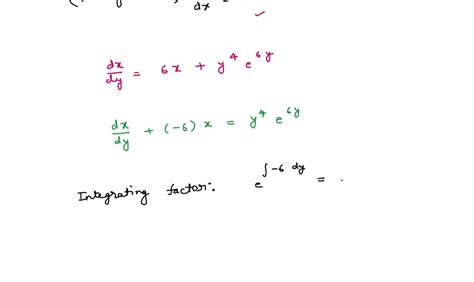 dx
dx/dy = 6x + y^4 e^6y
dx/dy + (-6) x = y^4 e^6y
Integrating factor: e^∫-6 dy = .